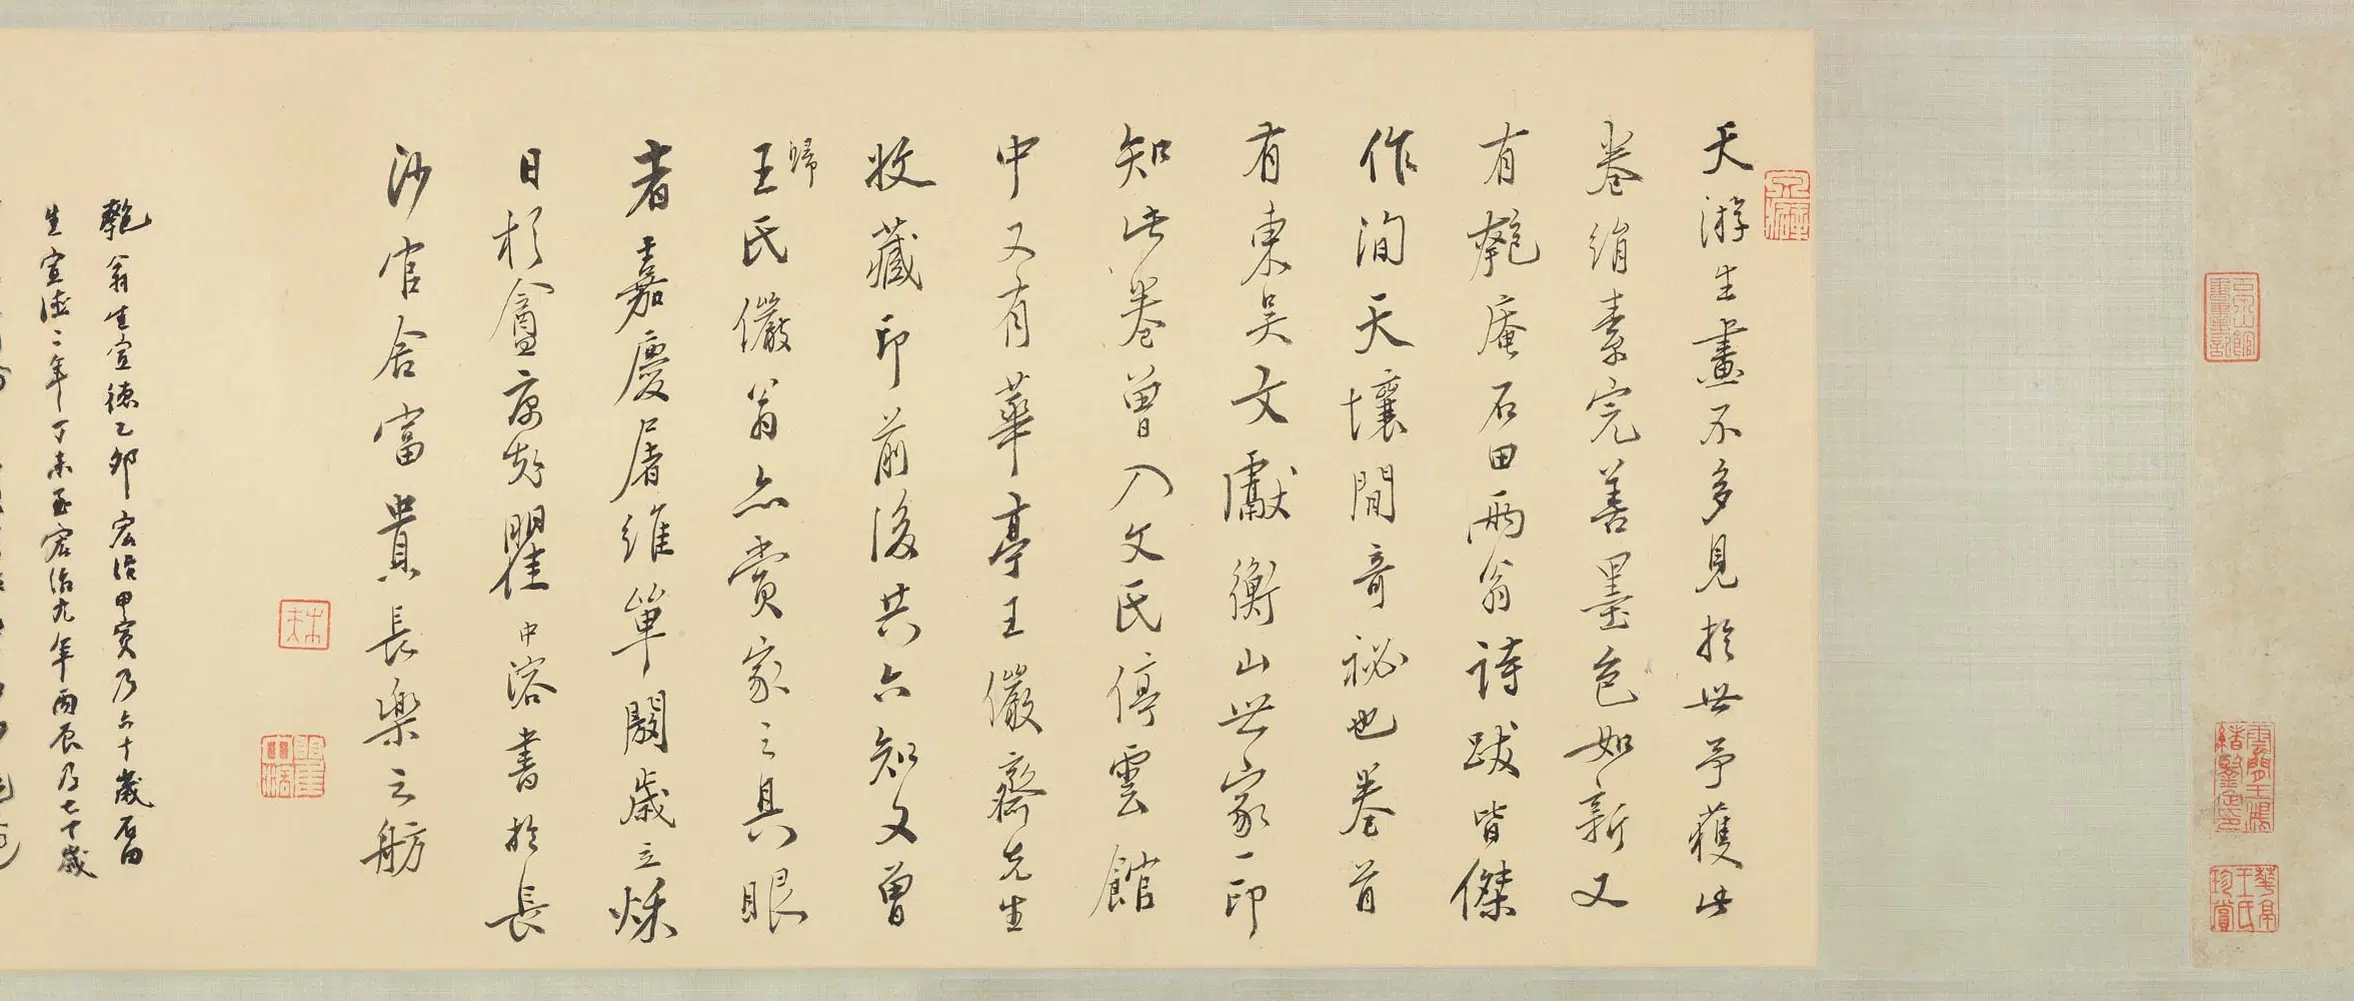 天游生畫不多見於世予獲此
卷絹素完善墨色如新又
有匏庵石田兩翁詩跋皆傑
作洵天壤間奇祕也卷首
有東吳文獻衡山世家一印
知此卷曾入文氏停雲館
中又有華亭王儼齋先生
收藏印前後共六知又曾
歸
王氏儼翁亦賞家之具眼
者嘉慶屠維單閼歲立秌
日杪瞿中溶書於長
沙官舍富貴長樂之舫
匏翁生宣德乙卯宏治甲寅乃六十歲石田
生宣德二年丁未至宏治九年丙辰乃七十歲
雲間王鴻緒鑒定印
華亭王氏珍賞